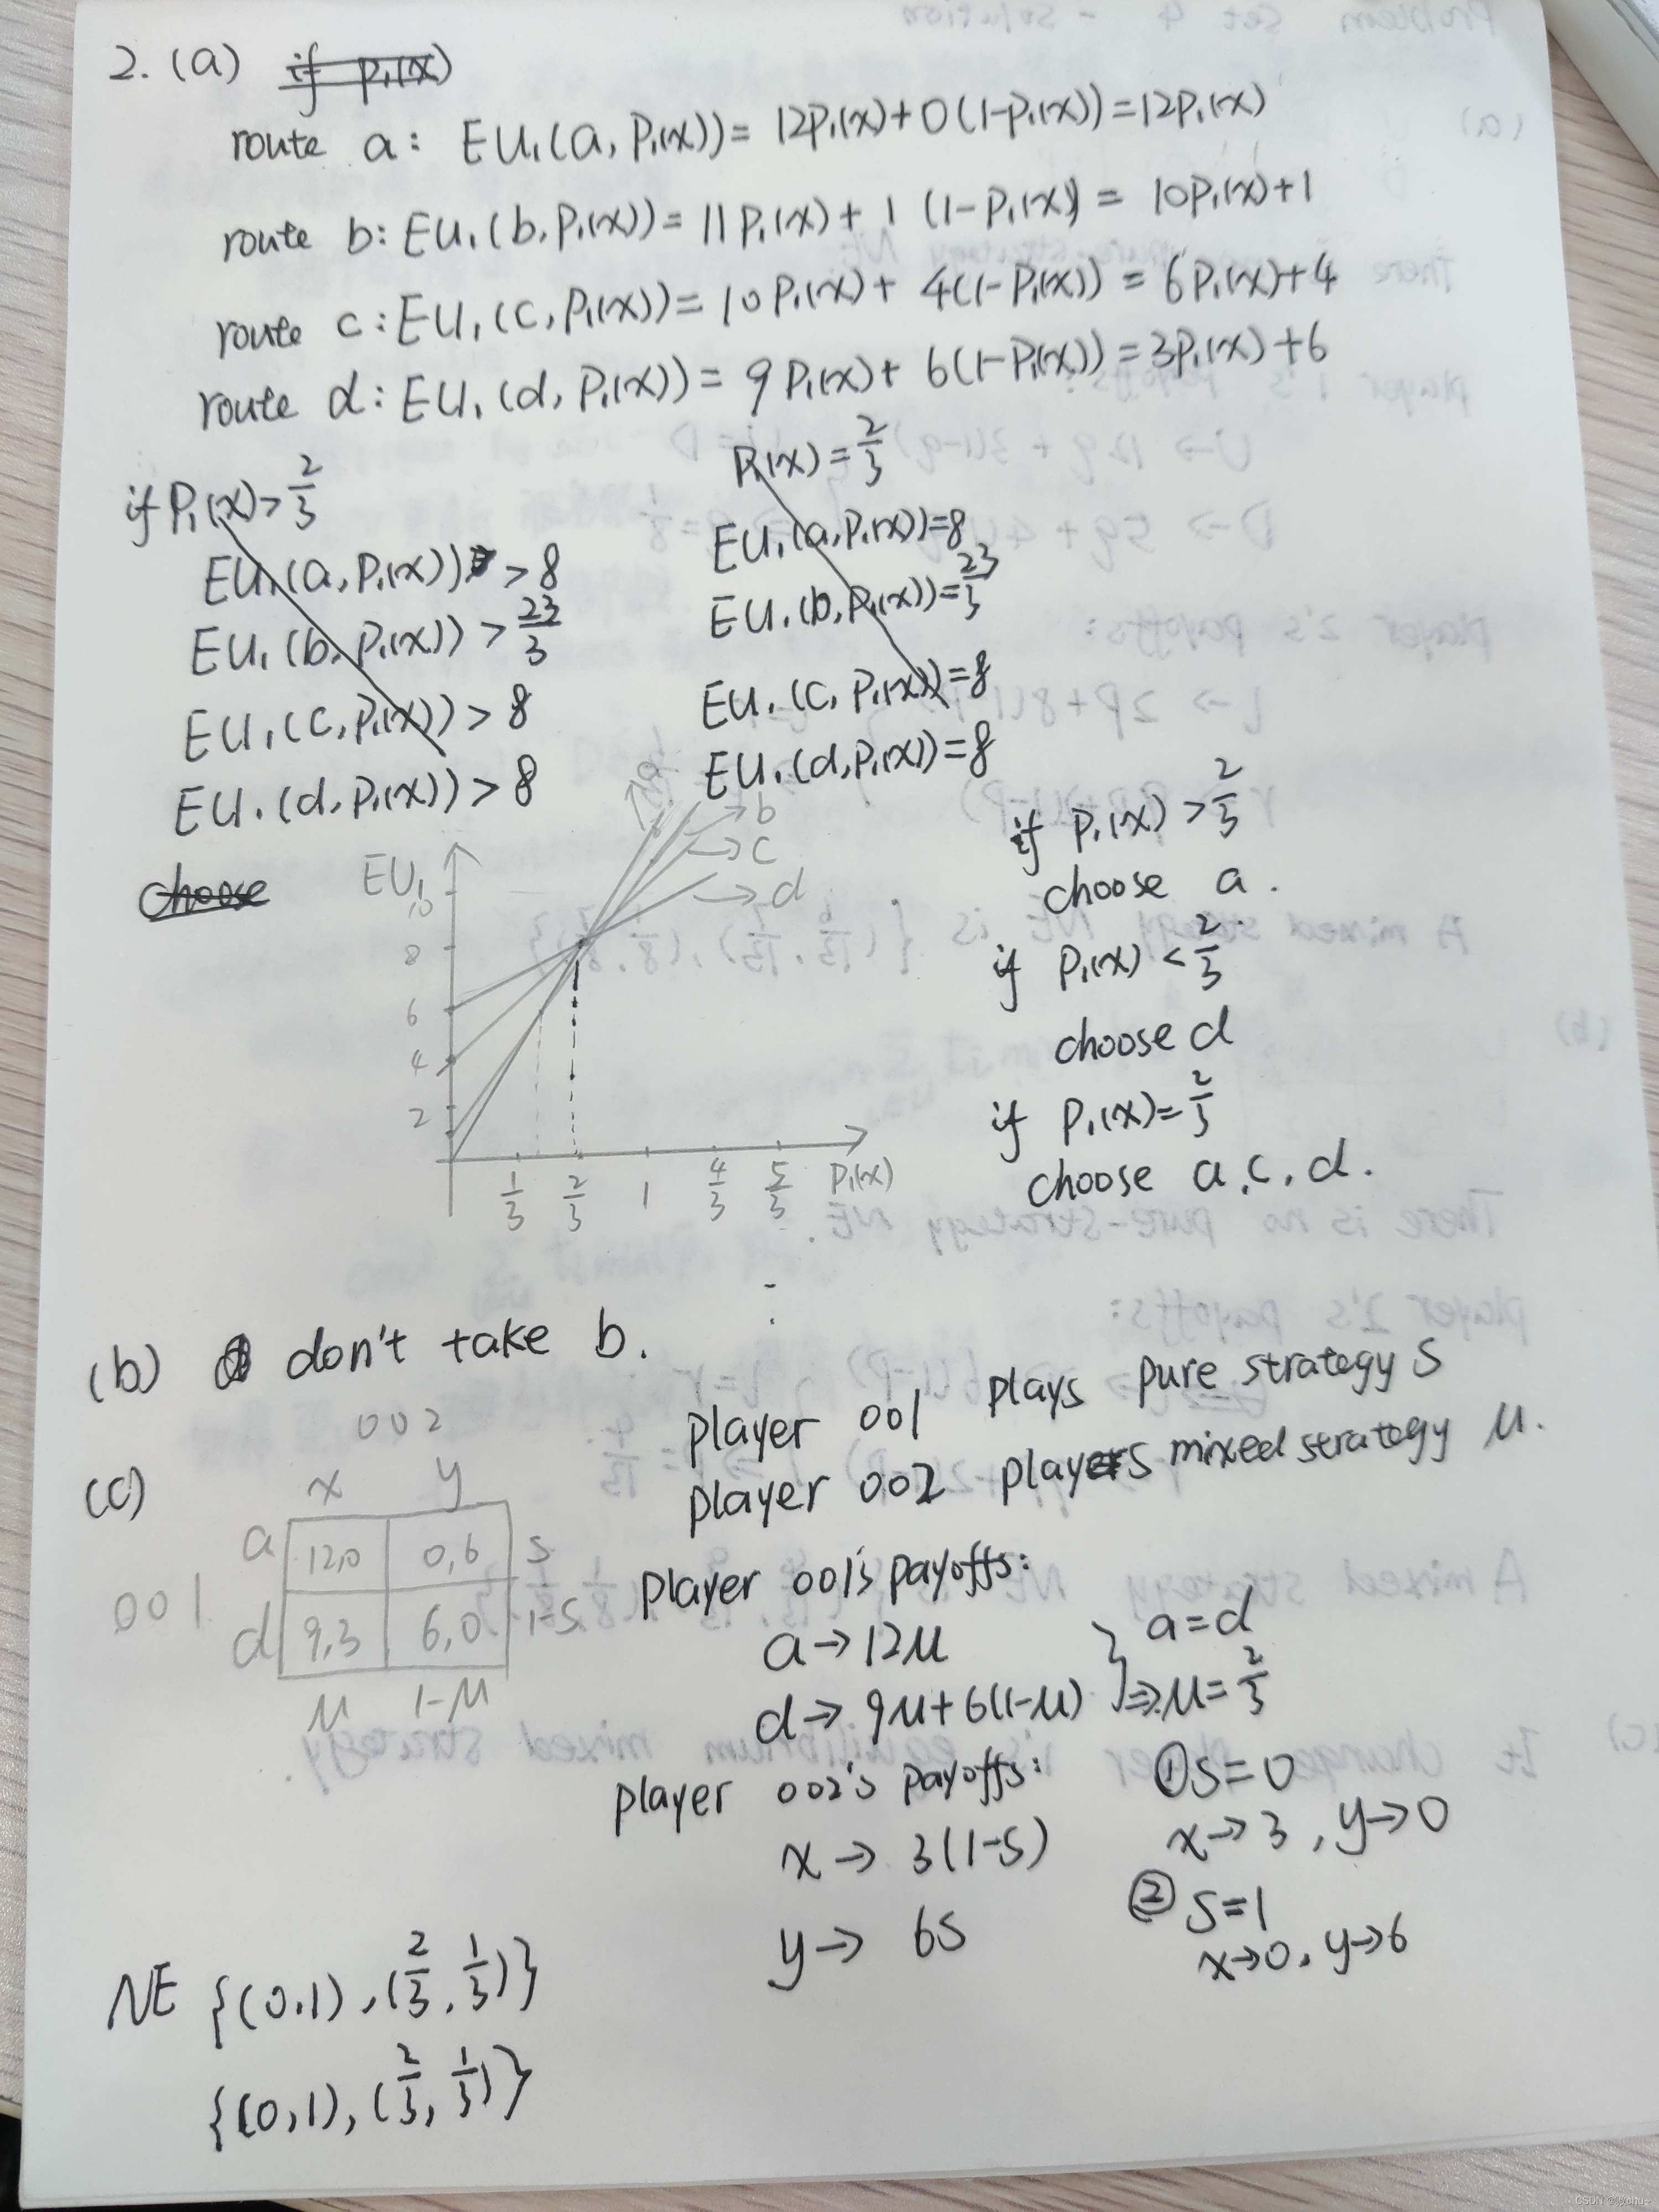 2. (a) if P₁(x)
route a: EU₁(a, P₁(x)) = 12P₁(x) + 0(1-P₁(x)) = 12P₁(x)
route b: EU₁(b, P₁(x)) = 11P₁(x) + 1(1-P₁(x)) = 10P₁(x)+1
route c: EU₁(c, P₁(x)) = 10P₁(x) + 4(1-P₁(x)) = 6P₁(x)+4
route d: EU₁(d, P₁(x)) = 9P₁(x) + 6(1-P₁(x)) = 3P₁(x)+6
if P₁(x) > 2/3
EU₁(a, P₁(x)) > 8
EU₁(b, P₁(x)) > 23/3
EU₁(c, P₁(x)) > 8
EU₁(d, P₁(x)) > 8
choose
P₁(x) = 2/3
EU₁(a, P₁(x)) = 8
EU₁(b, P₁(x)) = 23/3
EU₁(c, P₁(x)) = 8
EU₁(d, P₁(x)) = 8
EU₁
10
8
6
4
2
a
b
c
d
1/3 2/3 1 4/3 5/3 P₁(x)
if P₁(x) > 2/3
choose a.
if P₁(x) < 2/3
choose d
if P₁(x) = 2/3
choose a, c, d.
(b) don't take b.
(c)
002
x y
a 12,0 0,6 s
001 d 9,3 6,0 1-s
μ 1-μ
player 001 plays pure strategy s
player 002 plays mixed strategy μ.
player 001's payoffs:
a → 12μ
d → 9μ + 6(1-μ) } a = d ⇒ μ = 2/3
player 002's payoffs:
x → 3(1-s)
y → 6s
① s=0
x → 3, y → 0
② s=1
x→0, y→6
NE {(0,1), (2/3, 1/3)}
{(0,1), (2/3, 1/3)}